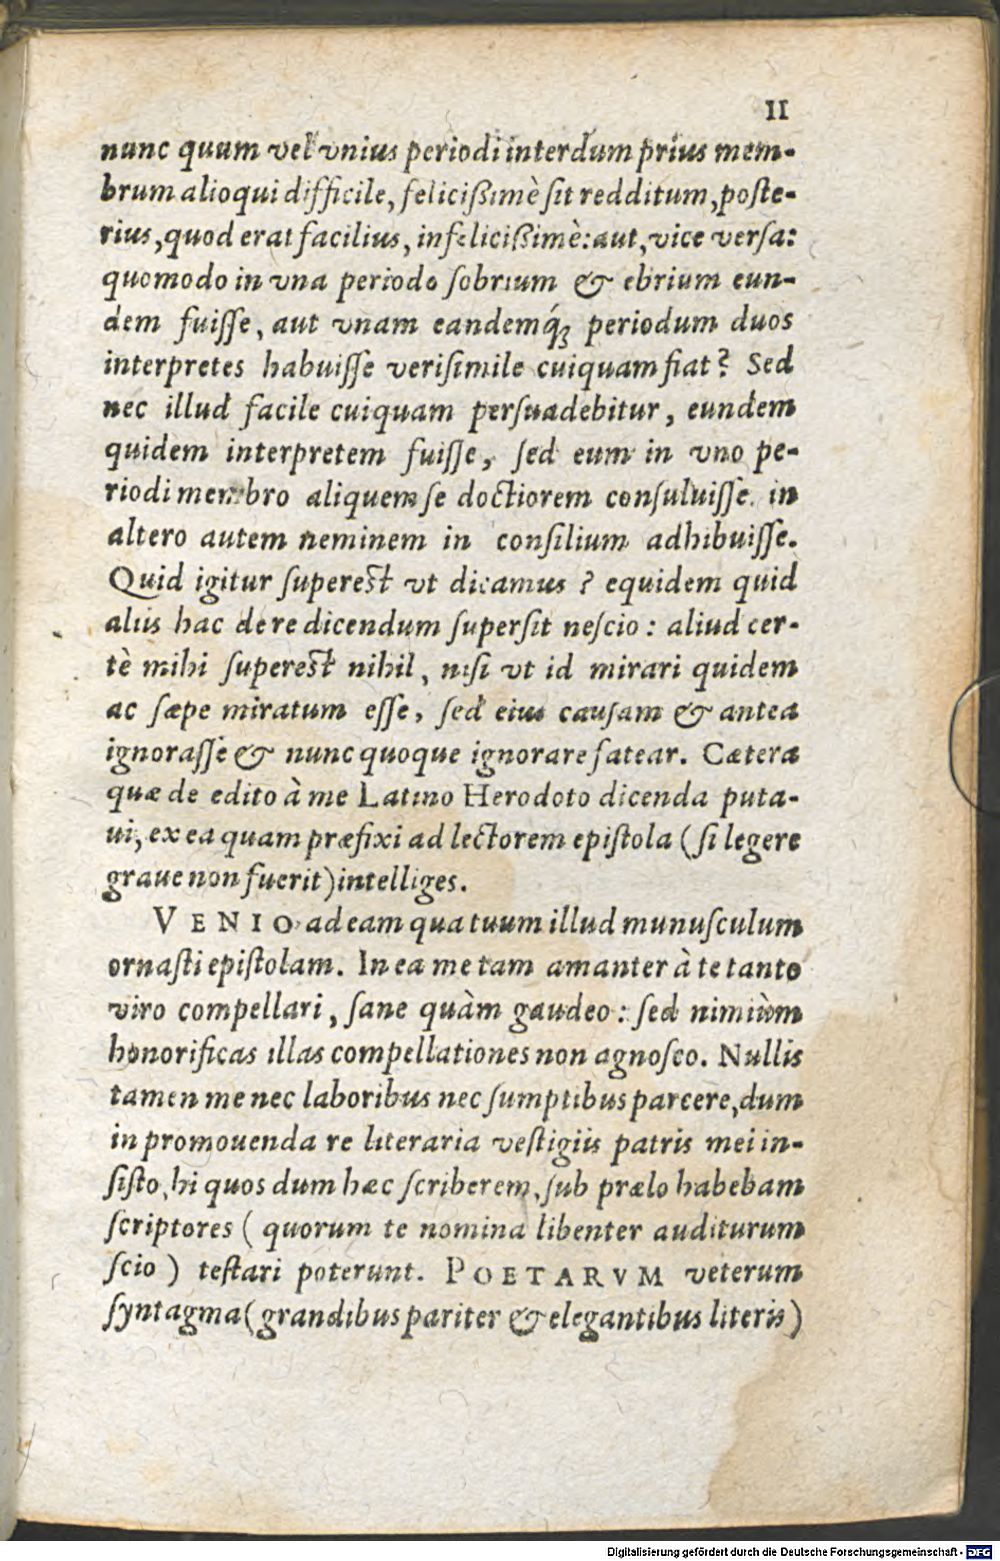 II
nunc quum vel vnius periodi interdum prius mem-
brum alioqui difficile, felicißimè sit redditum, poste-
rius, quod erat facilius, infelicißimè: aut, vice versa:
quomodo in vna periodo sobrium & ebrium eun-
dem fuisse, aut vnam eandemq́ꝫ periodum duos
interpretes habuisse verisimile cuiquam fiat? Sed
nec illud facile cuiquam persuadebitur, eundem
quidem interpretem fuisse, sed eum in vno pe-
riodi membro aliquem se doctiorem consuluisse, in
altero autem neminem in consilium adhibuisse.
Quid igitur superest vt dicamus? equidem quid
aliis hac de re dicendum supersit nescio: aliud cer-
tè mihi superest nihil, nisi vt id mirari quidem
ac sæpe miratum esse, sed eius causam & antea
ignorasse & nunc quoque ignorare fatear. Cætera
quæ de edito à me Latino Herodoto dicenda puta-
ui, ex ea quam præfixi ad lectorem epistola (si legere
graue non fuerit) intelliges.
VENIO ad eam qua tuum illud munusculum
ornasti epistolam. In ea me tam amanter à te tanto
viro compellari, sane quàm gaudeo: sed nimiùm
honorificas illas compellationes non agnosco. Nullis
tamen me nec laboribus nec sumptibus parcere, dum
in promouenda re literaria vestigiis patris mei in-
sisto, hi quos dum hæc scriberem, sub prælo habebam
scriptores (quorum te nomina libenter auditurum
scio) testari poterunt. POETARVM veterum
syntagma (grandibus pariter & elegantibus literis)
Digitalisierung gefördert durch die Deutsche Forschungsgemeinschaft - DFG